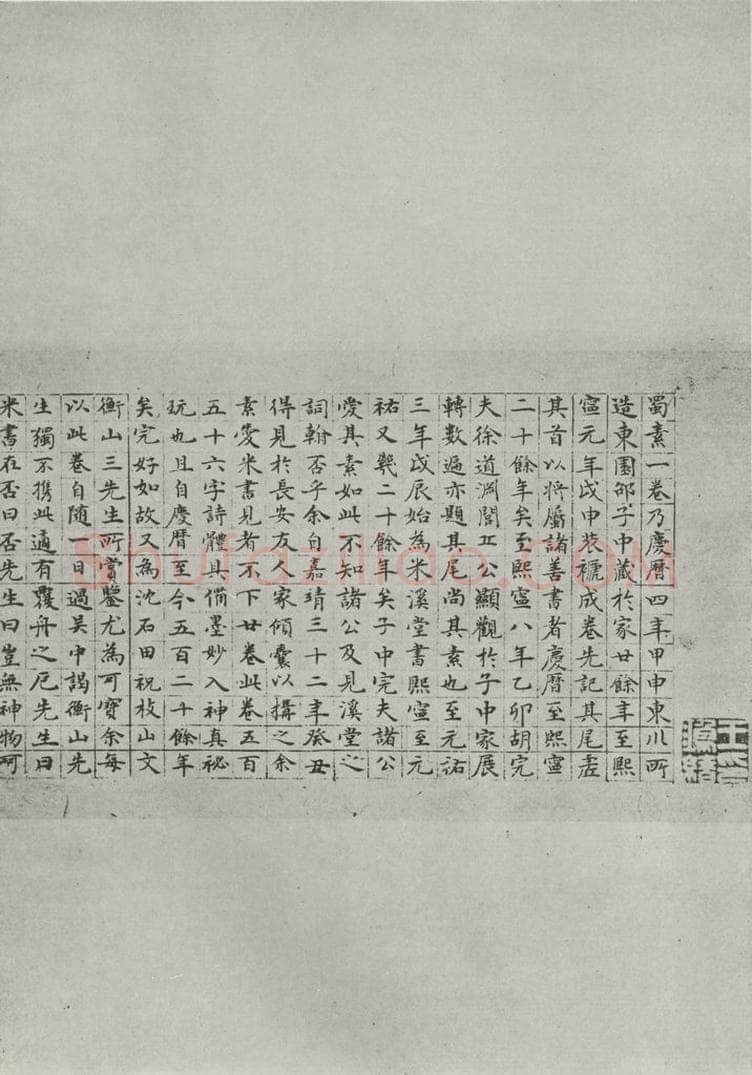 蜀素一卷乃慶曆四年甲申東川所
造東園邵子中藏於家廿餘年至熙
寧元年戊申裝褫成卷先記其尾虛
其首以將屬諸善書者慶曆至熙寧
二十餘年矣至熙寧八年乙卯胡完
夫徐道淵閭丘公顯觀於子中家展
轉數過亦題其尾尚其素也至元祐
三年戊辰始為米溪堂書熙寧至元
祐又幾二十餘年矣子中完夫諸公
愛其素如此不知諸公及見溪堂之
詞翰否乎余自嘉靖三十二年癸丑
得見於長安友人家傾囊以搆之余
素愛米書見者不下廿卷此卷五百
五十六字詩體具備墨妙入神真祕
玩也且自慶曆至今五百二十餘年
矣完好如故又為沈石田祝枝山文
衡山三先生所賞鑒尤為可寶余每
以此卷自隨一日過吳中謁衡山先
生獨不携此適有覆舟之厄先生曰
米書在否曰否先生曰豈無神物呵
shufaziliao.com